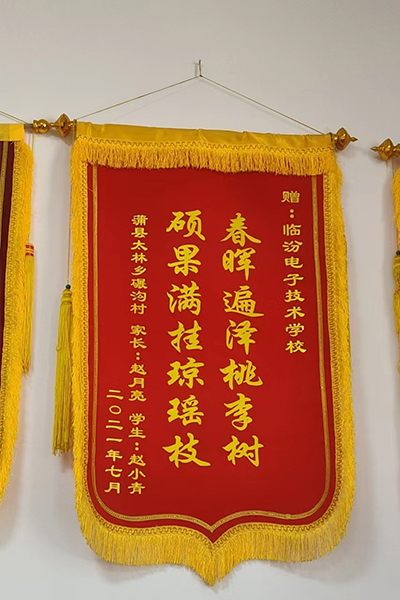 赠：临汾电子技术学校
春晖遍泽桃李树
硕果满挂琼瑶枝
蒲县太林乡碾沟村 家长：赵月亮 学生：赵小青
二〇二一年七月